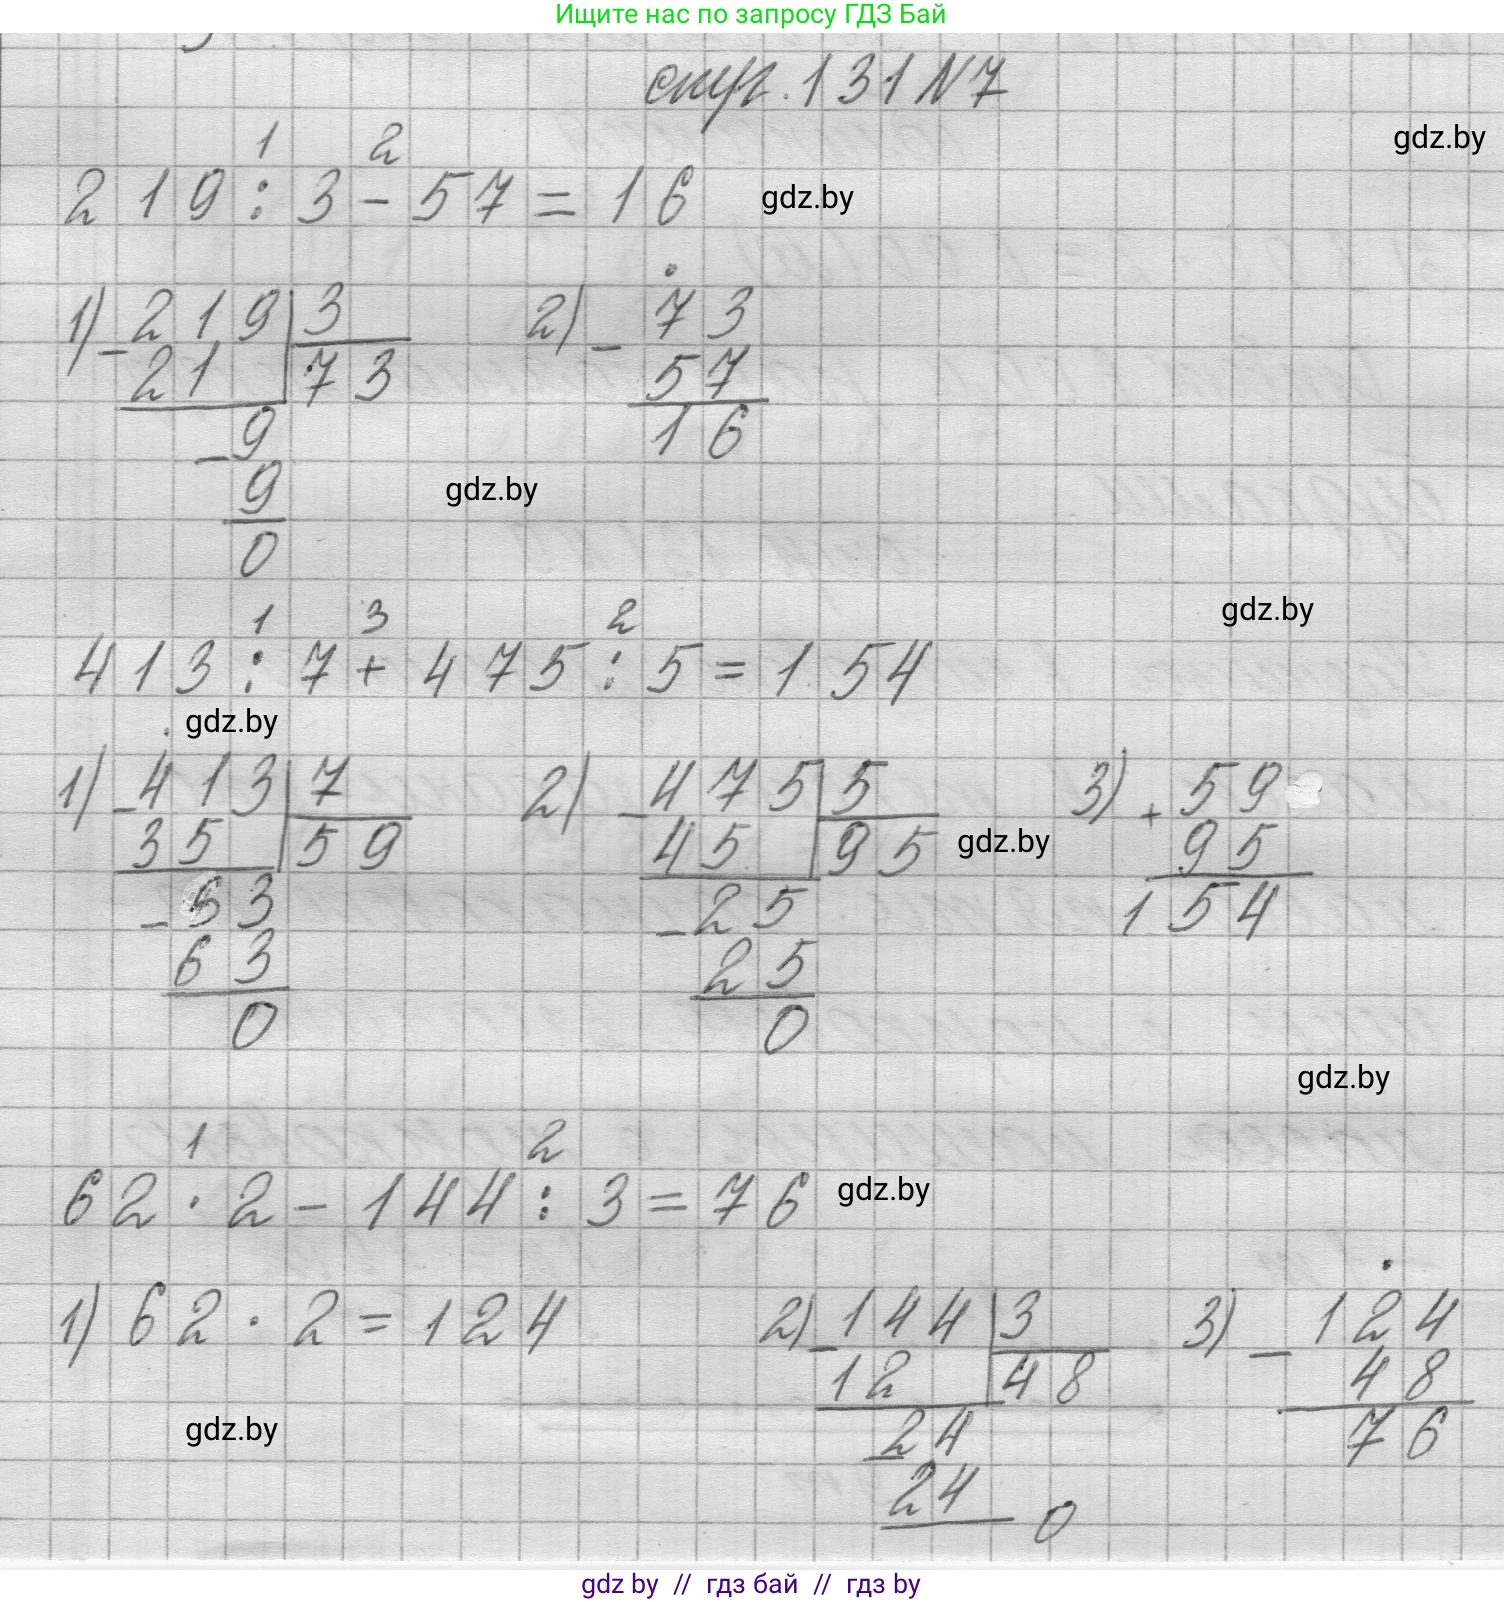 Ищите нас по запросу ГДЗ Бай
стр. 131 N 7
gdz.by
1 2
219 : 3 - 57 = 16
gdz.by
1) - 219 | 3
21 73
- 9
9
0
2) - 73
57
16
gdz.by
gdz.by
1 3 2
413 : 7 + 475 : 5 = 154
gdz.by
1) - 413 | 7
35 59
- 63
63
0
2) - 475 | 5
45 95
- 25
25
0
3) + 59
95
154
gdz.by
gdz.by
1 2
62 · 2 - 144 : 3 = 76
gdz.by
1) 62 · 2 = 124
2) - 144 | 3
12 48
- 24
24
0
3) - 124
48
76
gdz.by
gdz by // гдз бай // гдз by